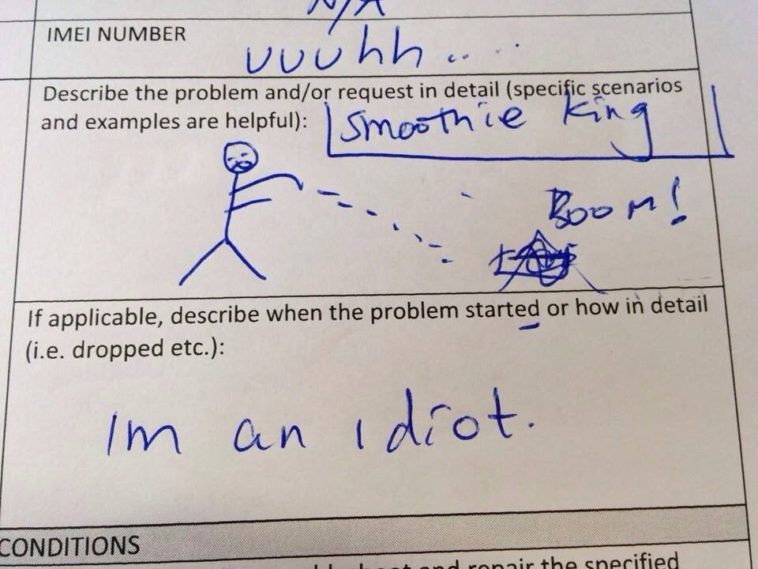 N/A
IMEI NUMBER
uuuhh .. ..
Describe the problem and/or request in detail (specific scenarios
and examples are helpful):
Smoothie king
BOOM!
If applicable, describe when the problem started or how in detail
(i.e. dropped etc.):
Im an idiot.
CONDITIONS
and repair the specified